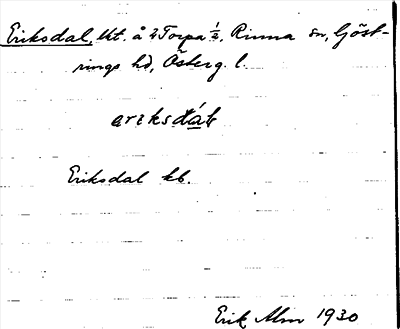 Eriksdal, lht. å Torpa ½, Rinna sn, Göst-
rings hd, Österg. l.
eriksdál
Eriksdal kb.
Erik Alm 1930